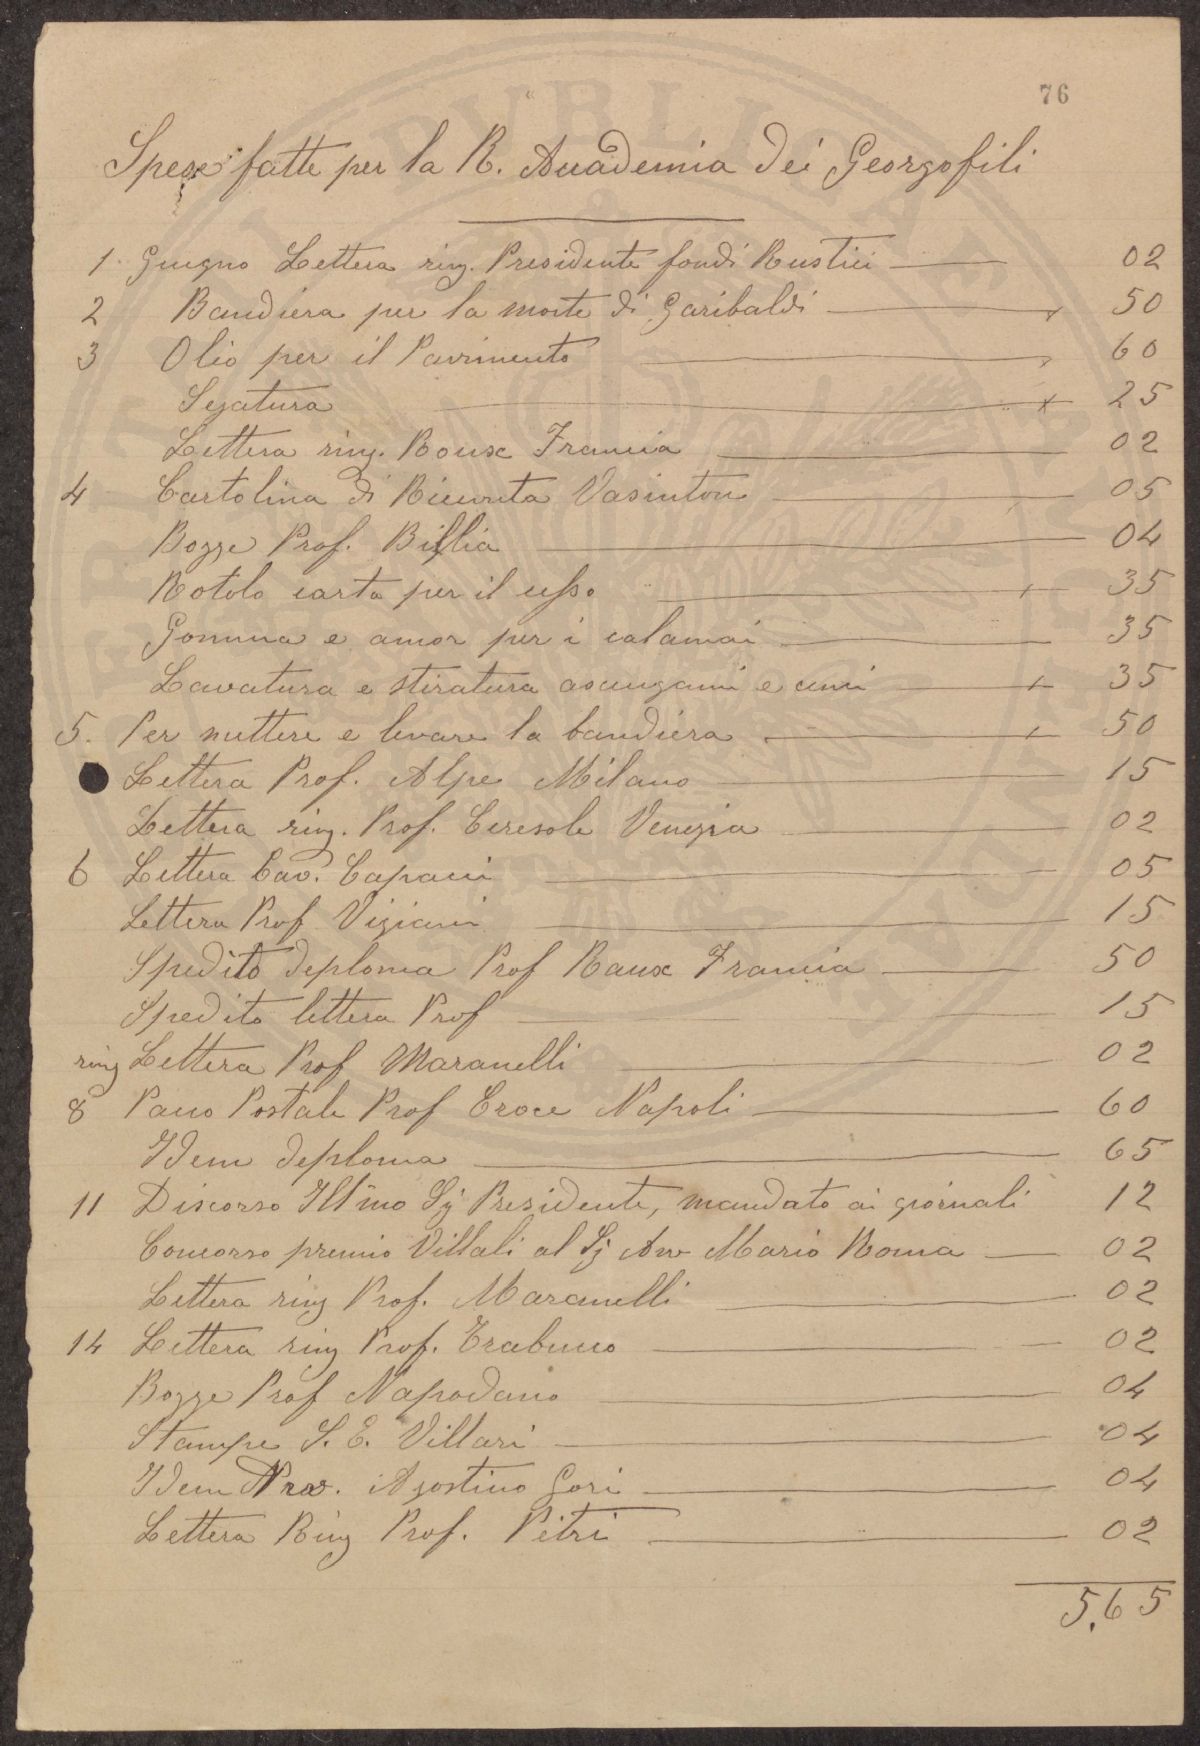 76
Spese fatte per la R. Accademia dei Georgofili
1 Giugno Lettera ring. Presidente fondi Rustici 02
2 Bandiera per la morte di Garibaldi 50
3 Olio per il Pavimento 60
Segatura 25
Lettera ring. Roux Francia 02
4 Cartolina di Ricevuta Vasinton 05
Bozze Prof. Billia 04
Rotolo carta per il cesso 35
Gomma e amor per i calamai 35
Lavatura e stiratura asciugami e cenci 35
5. Per mettere e levare la bandiera 50
Lettera Prof. Alpe Milano 15
Lettera ring. Prof. Ceresole Venezia 02
6 Lettera Cav. Capacci 05
Lettera Prof Vigiani 15
Spedito deploma Prof Raux Francia 50
Spedito lettera Prof 15
ring Lettera Prof Maranelli 02
8 Pacco Postale Prof Croce Napoli 60
Idem deploma 65
11 Discorso Ill'mo Sig Presidente, mandato ai giornali 12
Concorso premio Villali al Sig Avv Mario Roma 02
Lettera ring Prof. Maranelli 02
14 Lettera ring Prof. Trabucco 02
Bozze Prof Napodano 04
Stampe S. E. Villari 04
Idem Agostino Gori 04
Lettera Ring Prof. Petri 02
5,65